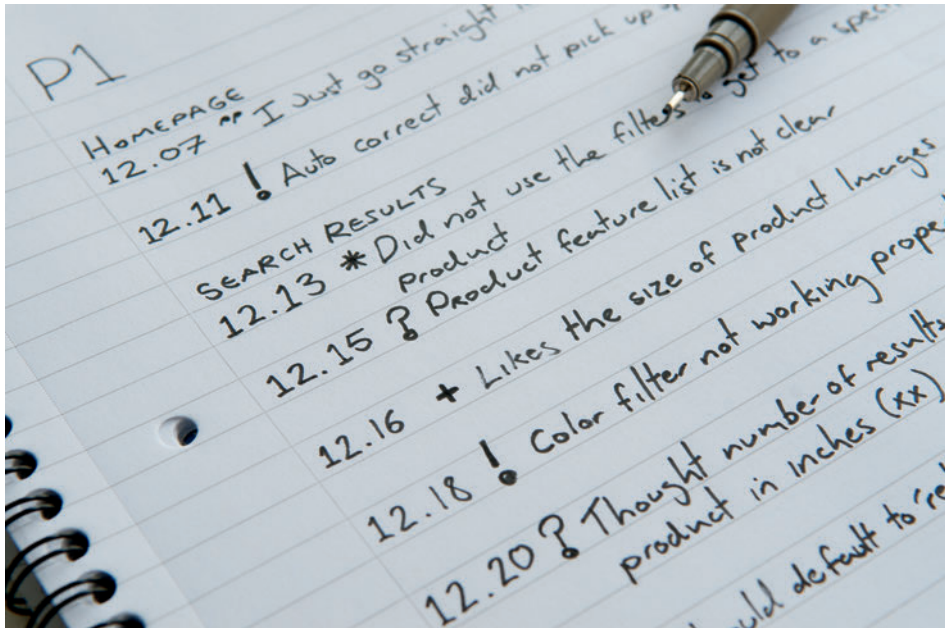 P1
HOMEPAGE
12.07 "" I Just go straight
12.11 ! Auto correct did not pick up
SEARCH RESULTS
12.13 * Did not use the filters to get to a
product
12.15 ? Product feature list is not clear
12.16 + Likes the size of product Images
12.18 ! Color filter not working
12.20 ? Thought number of results
product in inches (xx)
default to